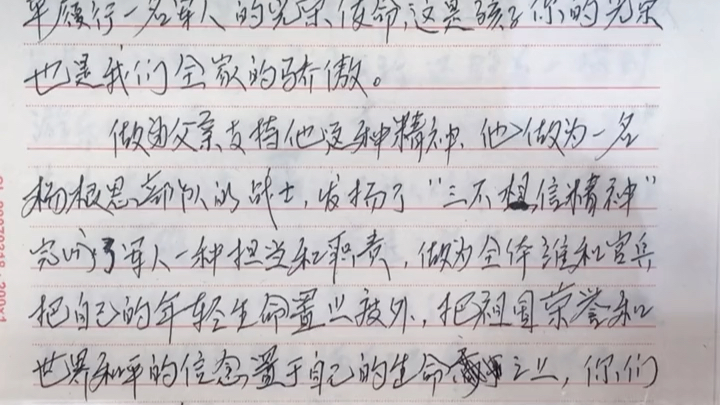 牢履行一名军人的光荣使命,这是孩子你的光荣
也是我们全家的骄傲。
做为父亲支持他这种精神、他做为一名
杨根思部队的战士,发扬了“三不相信精神”
完成了军人一种担当和职责,做为全体维和官兵
把自己的年轻生命置之度外,把祖国荣誉和
世界和平的信念置于自己的生命之上,你们